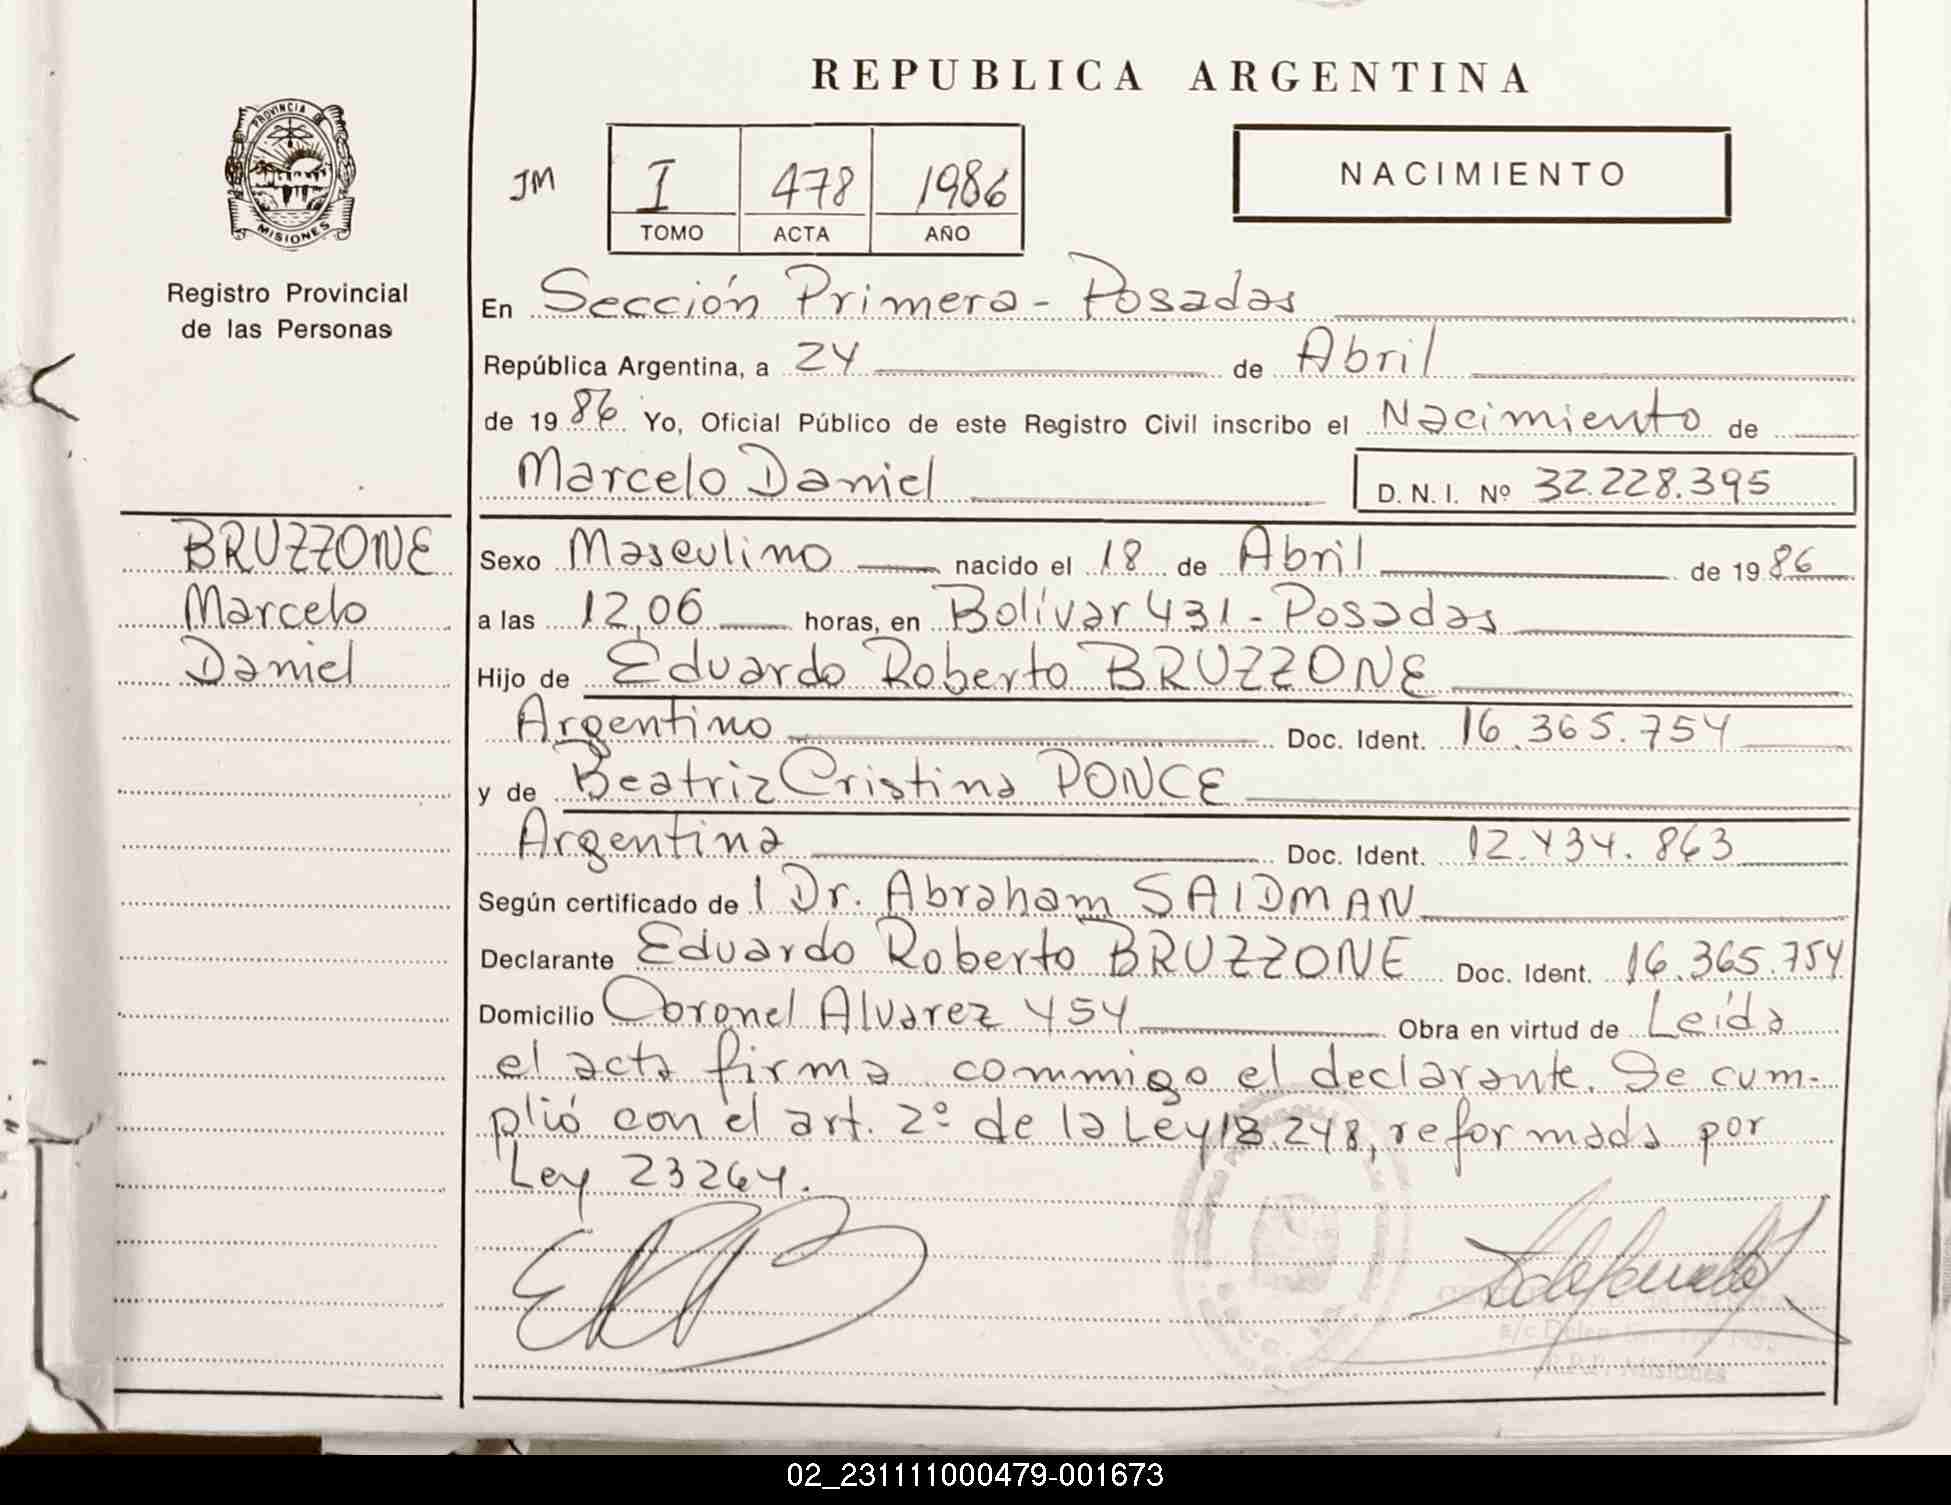 REPUBLICA ARGENTINA
PROVINCIA DE
MISIONES
Registro Provincial
de las Personas
JM
I 478 1986
TOMO ACTA AÑO
NACIMIENTO
En Sección Primera - Posadas
República Argentina, a 24 de Abril
de 1986 Yo, Oficial Público de este Registro Civil inscribo el Nacimiento de
Marcelo Daniel D. N. I. Nº 32.228.395
BRUZZONE
Marcelo
Daniel
Sexo Masculino nacido el 18 de Abril de 1986
a las 12,06 horas, en Bolívar 431 - Posadas
Hijo de Eduardo Roberto BRUZZONE
Argentino Doc. Ident. 16.365.754
y de Beatriz Cristina PONCE
Argentina Doc. Ident. 12.434.863
Según certificado de l Dr. Abraham SAIDMAN
Declarante Eduardo Roberto BRUZZONE Doc. Ident. 16.365.754
Domicilio Coronel Alvarez 454 Obra en virtud de Leída
el acta firma conmigo el declarante. Se cum-
plió con el art. 2º de la Ley 18.248, reformada por
Ley 23264.
Misiones
02_231111000479-001673